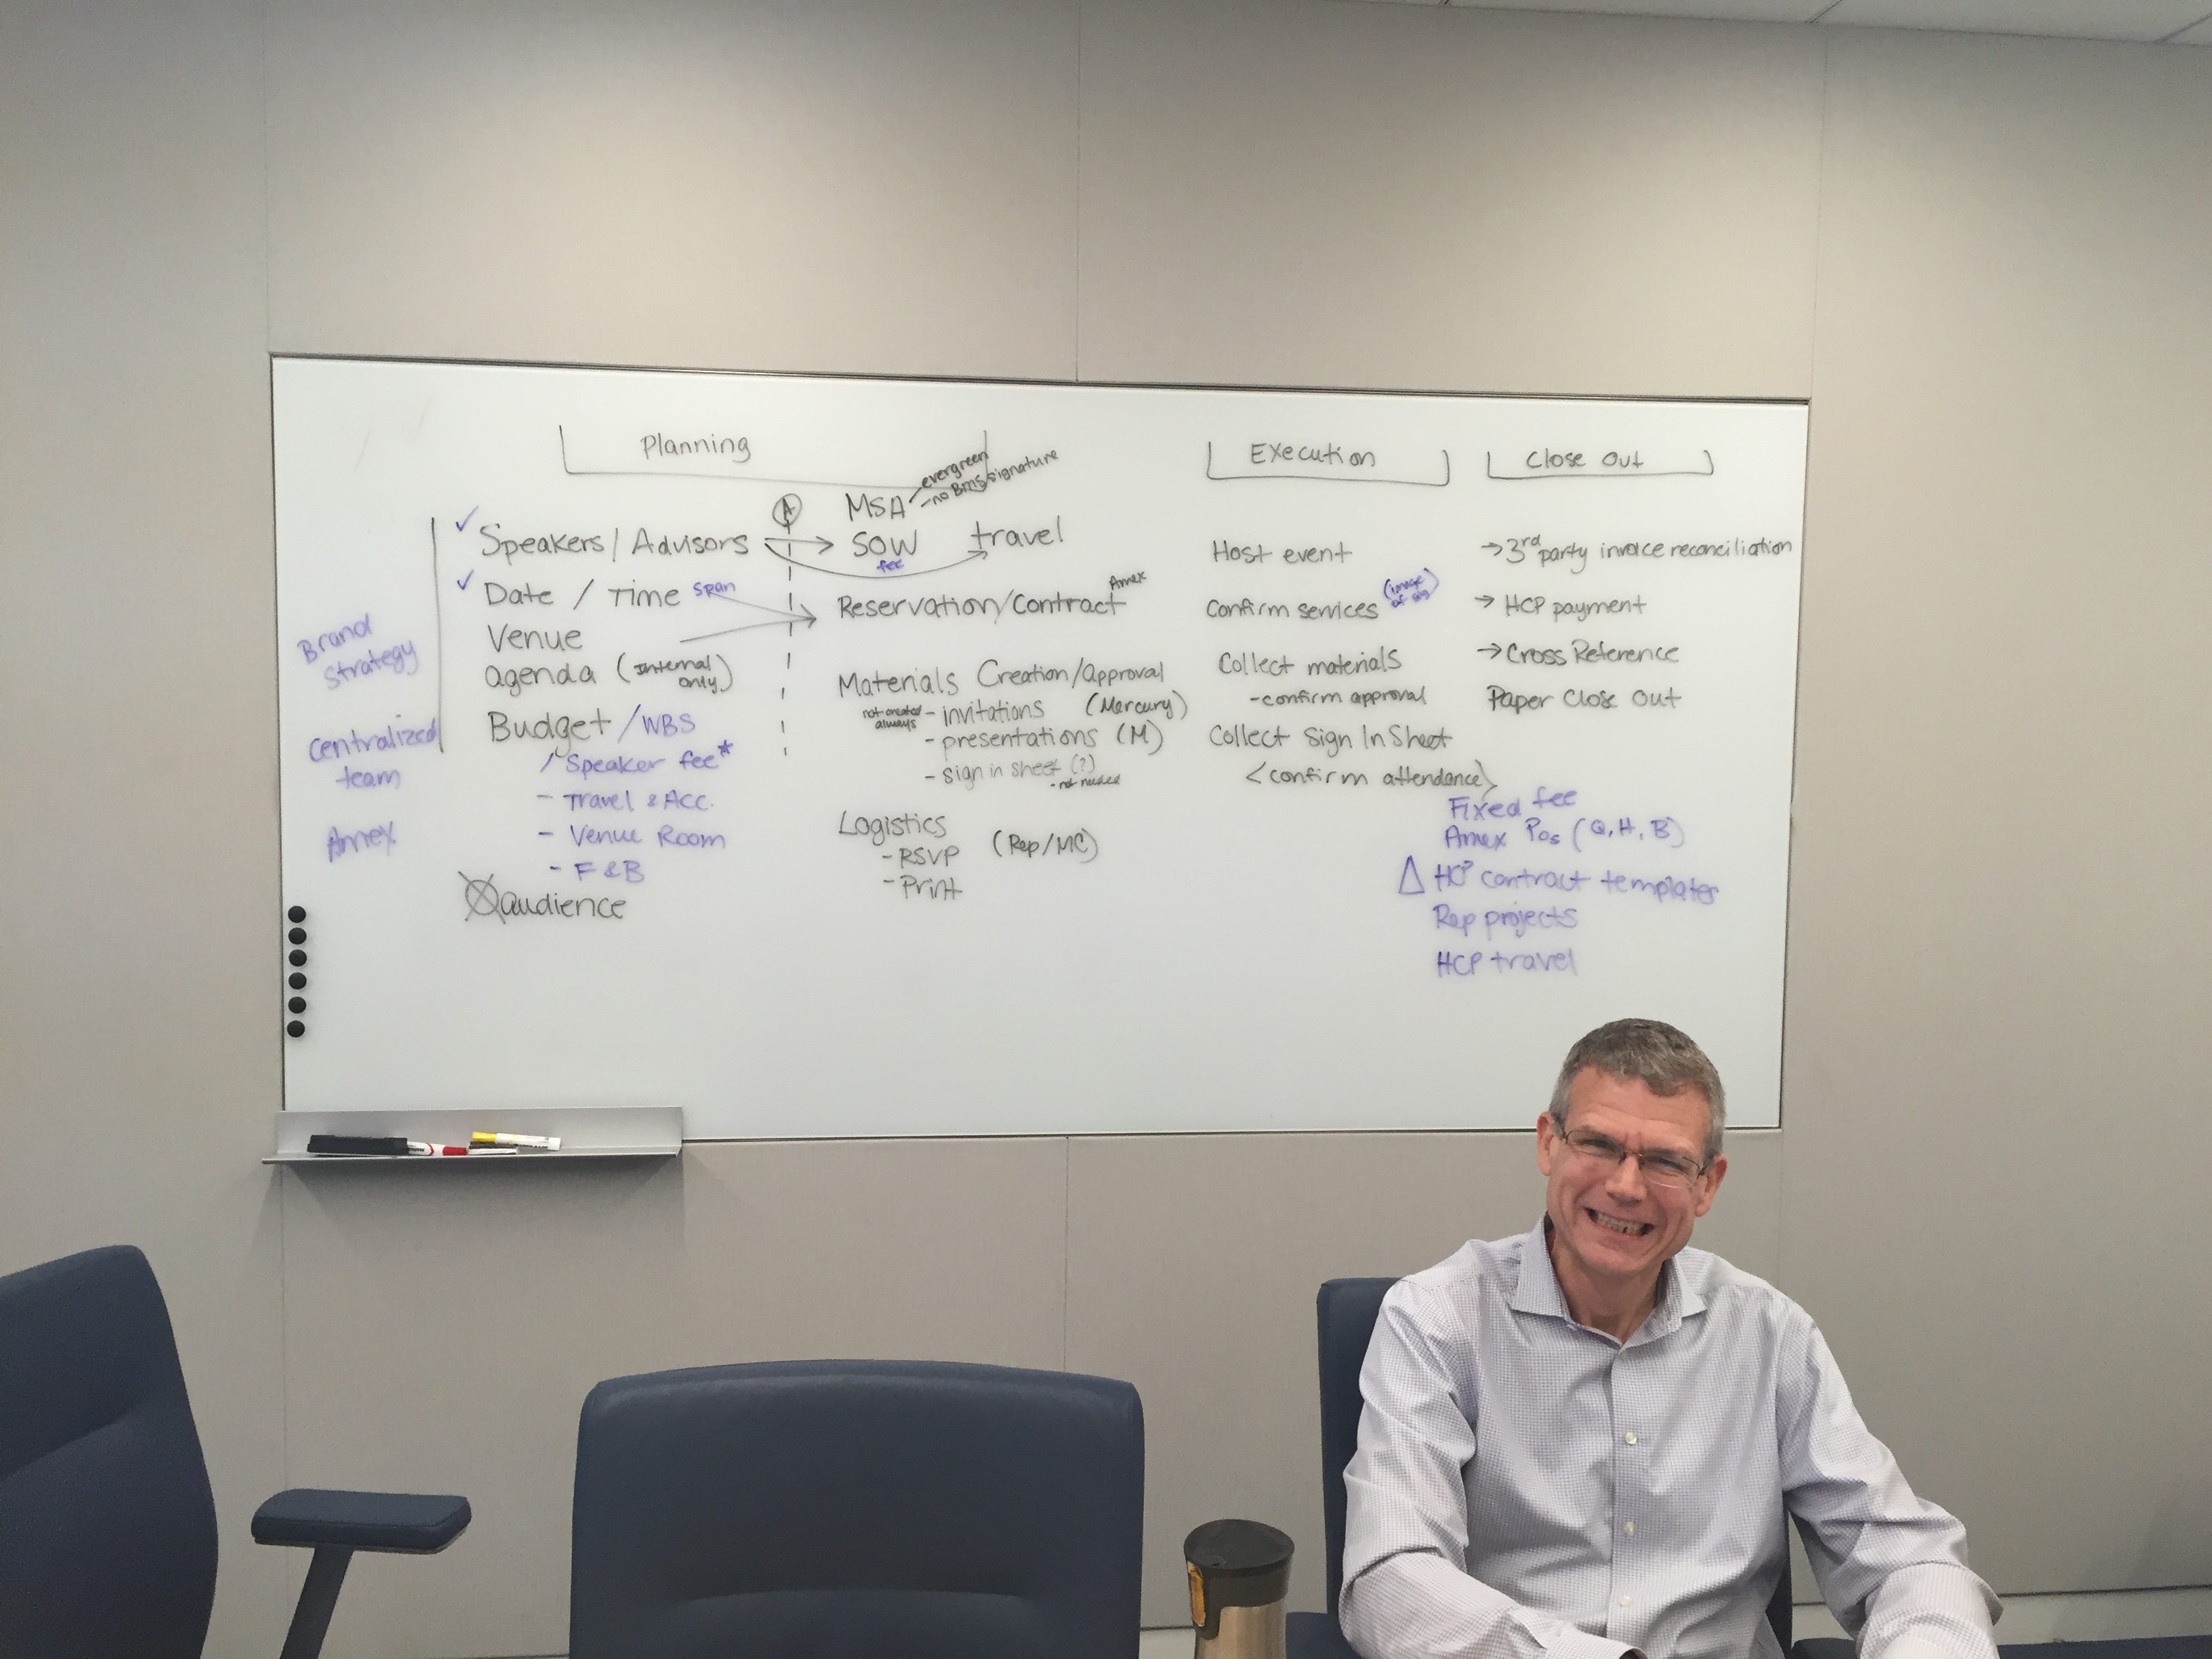 Planning
Execution
Close Out
evergreen
MSA - no BMS signature
A
✓ Speakers / Advisors → SOW travel
fee
✓ Date / Time span
Venue
agenda (Internal only)
Budget / WBS
/ Speaker fee*
- Travel & Acc.
- Venue Room
- F & B
audience
Brand
Strategy
Centralized
team
Amex
Reservation/Contract Amex
Materials Creation/Approval
not created always - invitations (Mercury)
- presentations (M)
- sign in sheet (?)
- not needed
Logistics (Rep/MC)
- RSVP
- Print
Host event
Confirm services (image of sig)
Collect materials
- confirm approval
Collect Sign In Sheet
<confirm attendance>
→ 3rd party invoice reconciliation
→ HCP payment
→ Cross Reference
Paper Close Out
Fixed fee
Amex Pos (Q, H, B)
Δ HCP contract templates
Rep projects
HCP travel